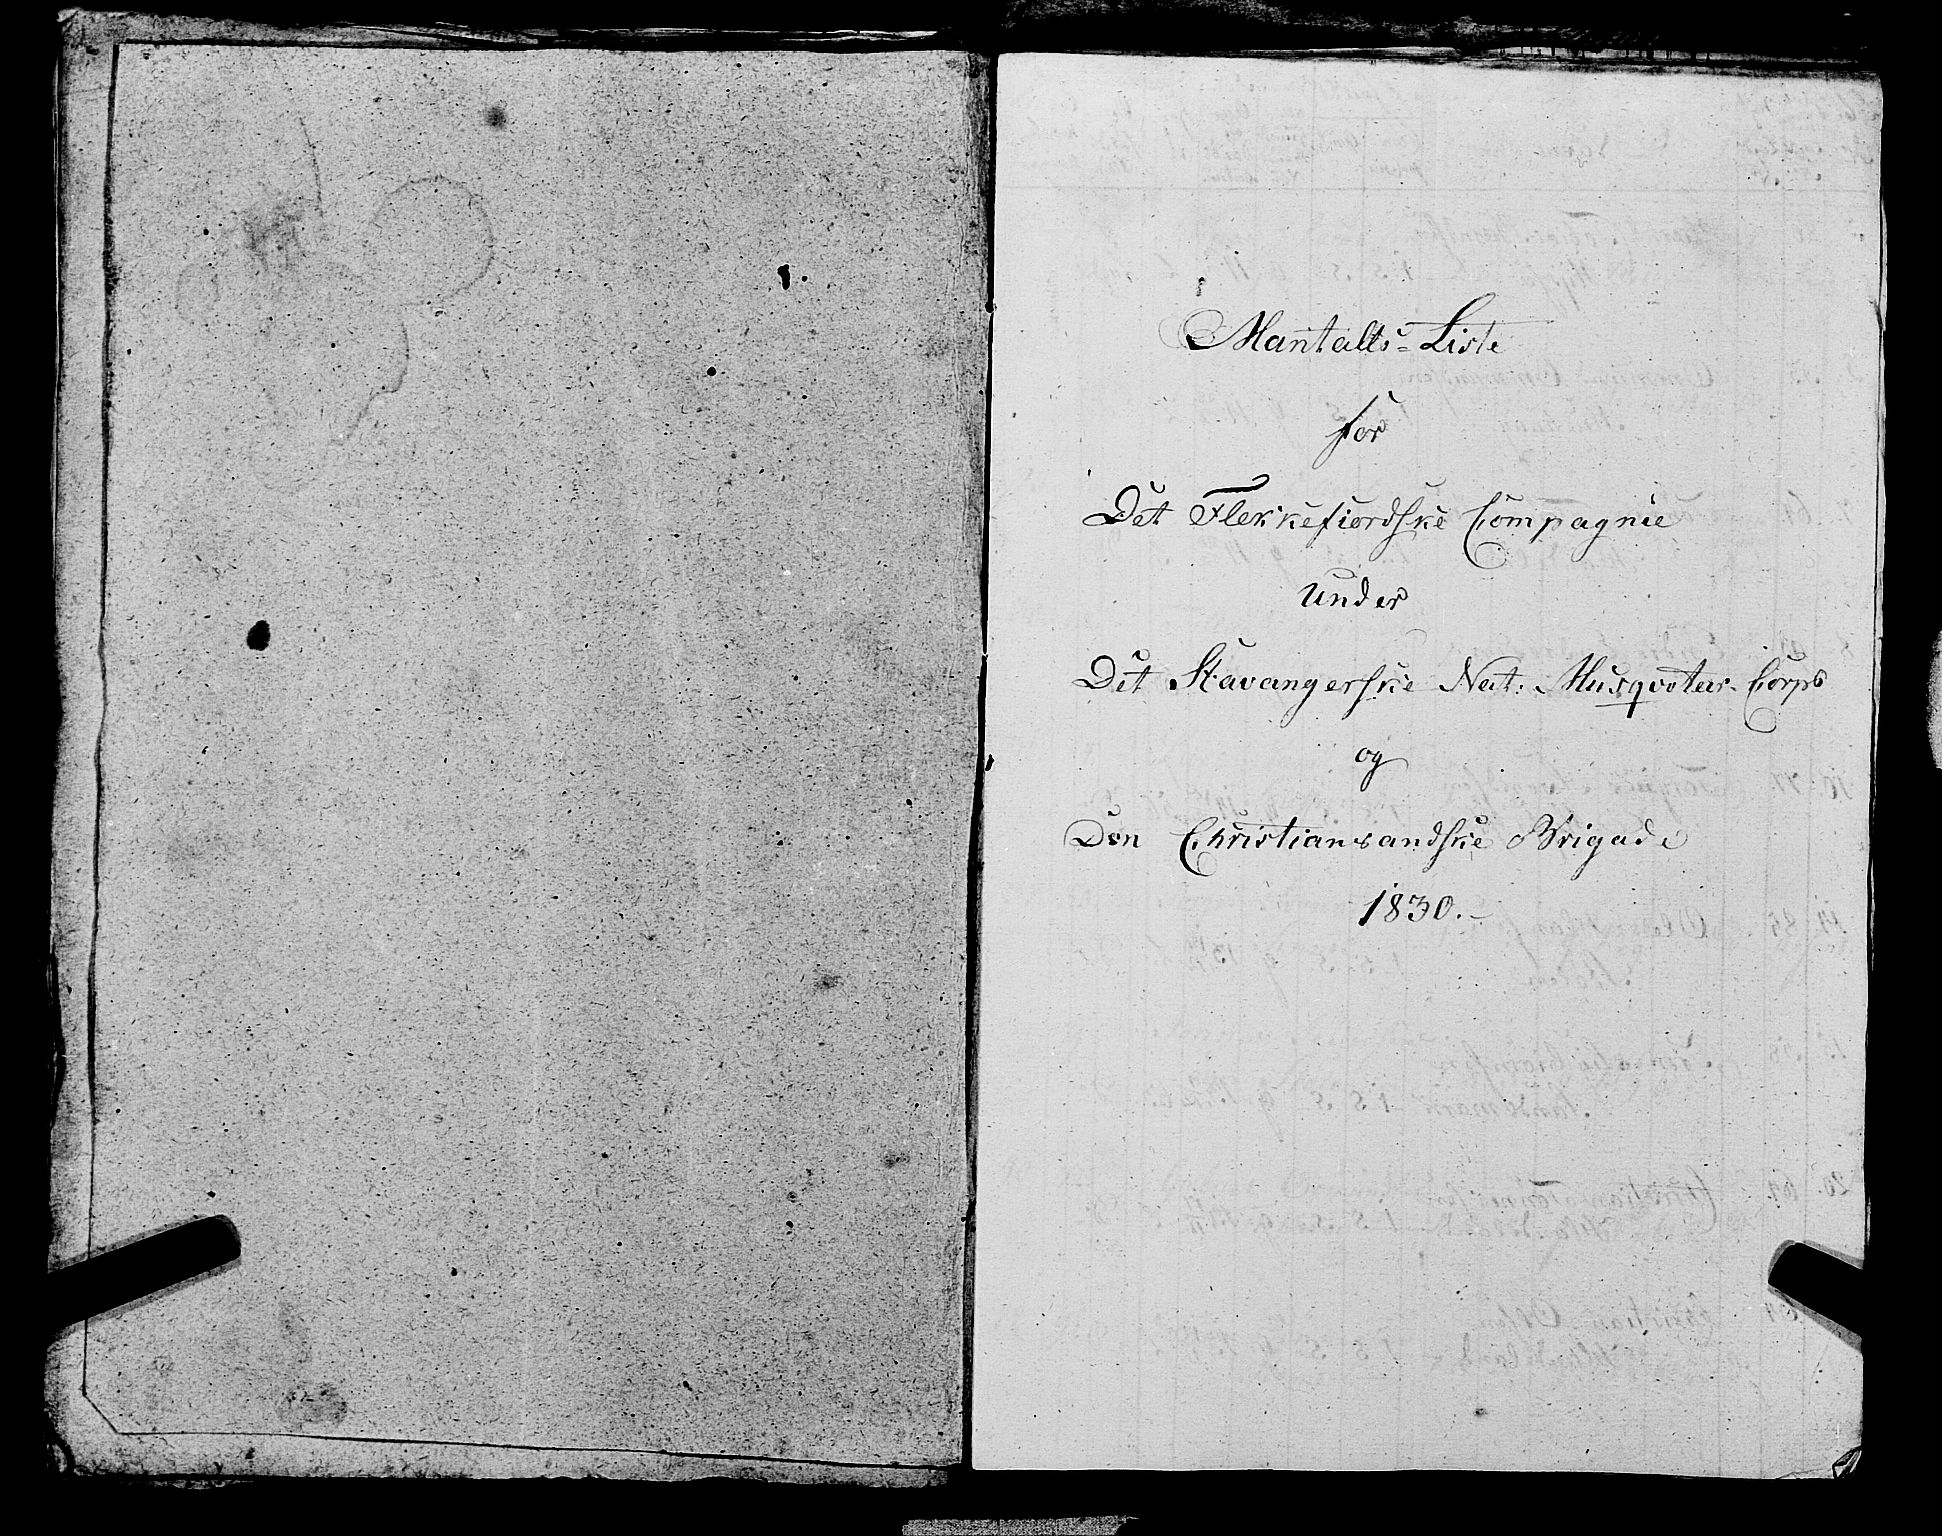 Mantalls-Liste
for
Det Flekkefiordske Compagnie
Under
Det Stavangerske Nat: Musqveteer-Corps
og
Den Christiansandske Brigade
1830.-